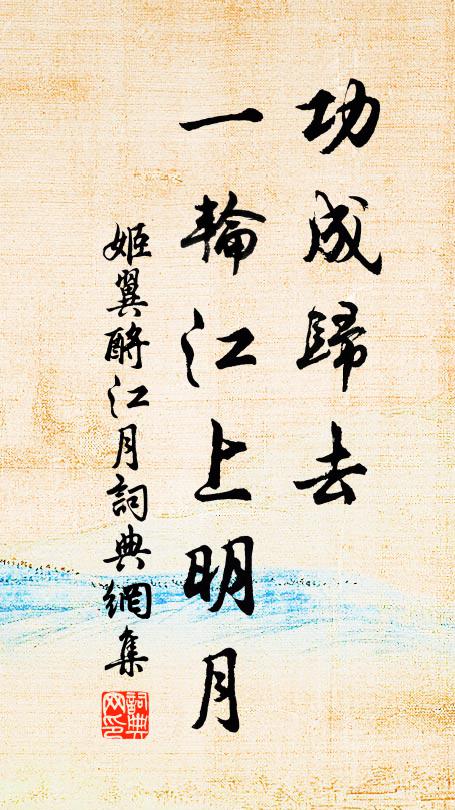 功成歸去
一輪江上明月
姬翼酹江月詞典網集
詞典
网印